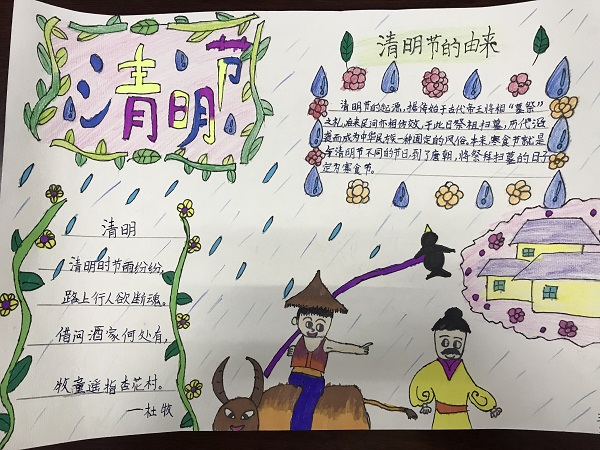 清明节
清明节的由来
清明节的起源，据传始于古代帝王将相"墓祭"
之礼，后来民间亦相仿效，于此日祭祖扫墓，历代沿
袭而成为中华民族一种固定的风俗。本来，寒食节就是
与清明节不同的节日，到了唐朝，将祭拜扫墓的日子
定为寒食节。
清明
清明时节雨纷纷，
路上行人欲断魂。
借问酒家何处有，
牧童遥指杏花村。
——杜牧